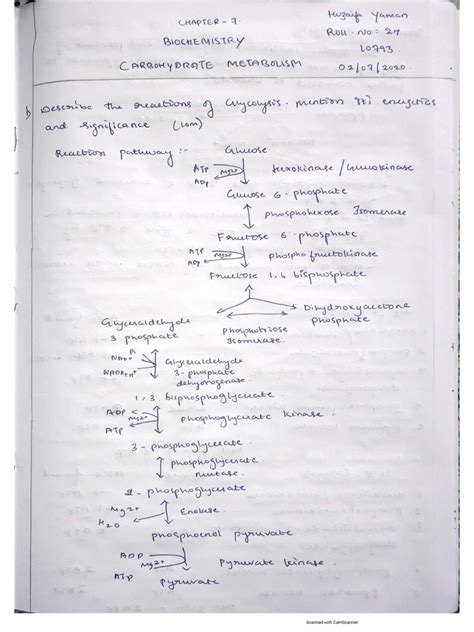 CHAPTER - 7.
Huzaifa Yaman
ROLL. NO: 27
BIOCHEMISTRY
10793
CARBOHYDRATE METABOLISM
02/07/2020
1) Describe the reactions of Glycolysis. mention its energetics
and significance (10m)
Reaction pathway :-
Glucose
ATP
Mg2+
ADP
Hexokinase / Glucokinase
Glucose 6-phosphate
phosphohexose Isomerase
Fructose 6-phosphate
ATP
Mg2+
ADP
Phosphofructokinase
Fructose 1,6 bisphosphate
Glyceraldehyde
- 3 phosphate
Phosphotriose
Isomerase.
Dihydroxyacetone
Phosphate
NAD+
Glyceraldehyde
3-phosphate
dehydrogenase
1,3 bisphosphoglycerate
ADP
Mg2+
ATP
phosphoglycerate kinase.
3 - phosphoglycerate
phosphoglycerate
mutase.
2 - phosphoglycerate
Mg2+
H2O
Enolase.
phosphoenol pyruvate
ADP
Mg2+
ATP
Pyruvate kinase.
Pyruvate
Scanned with CamScanner